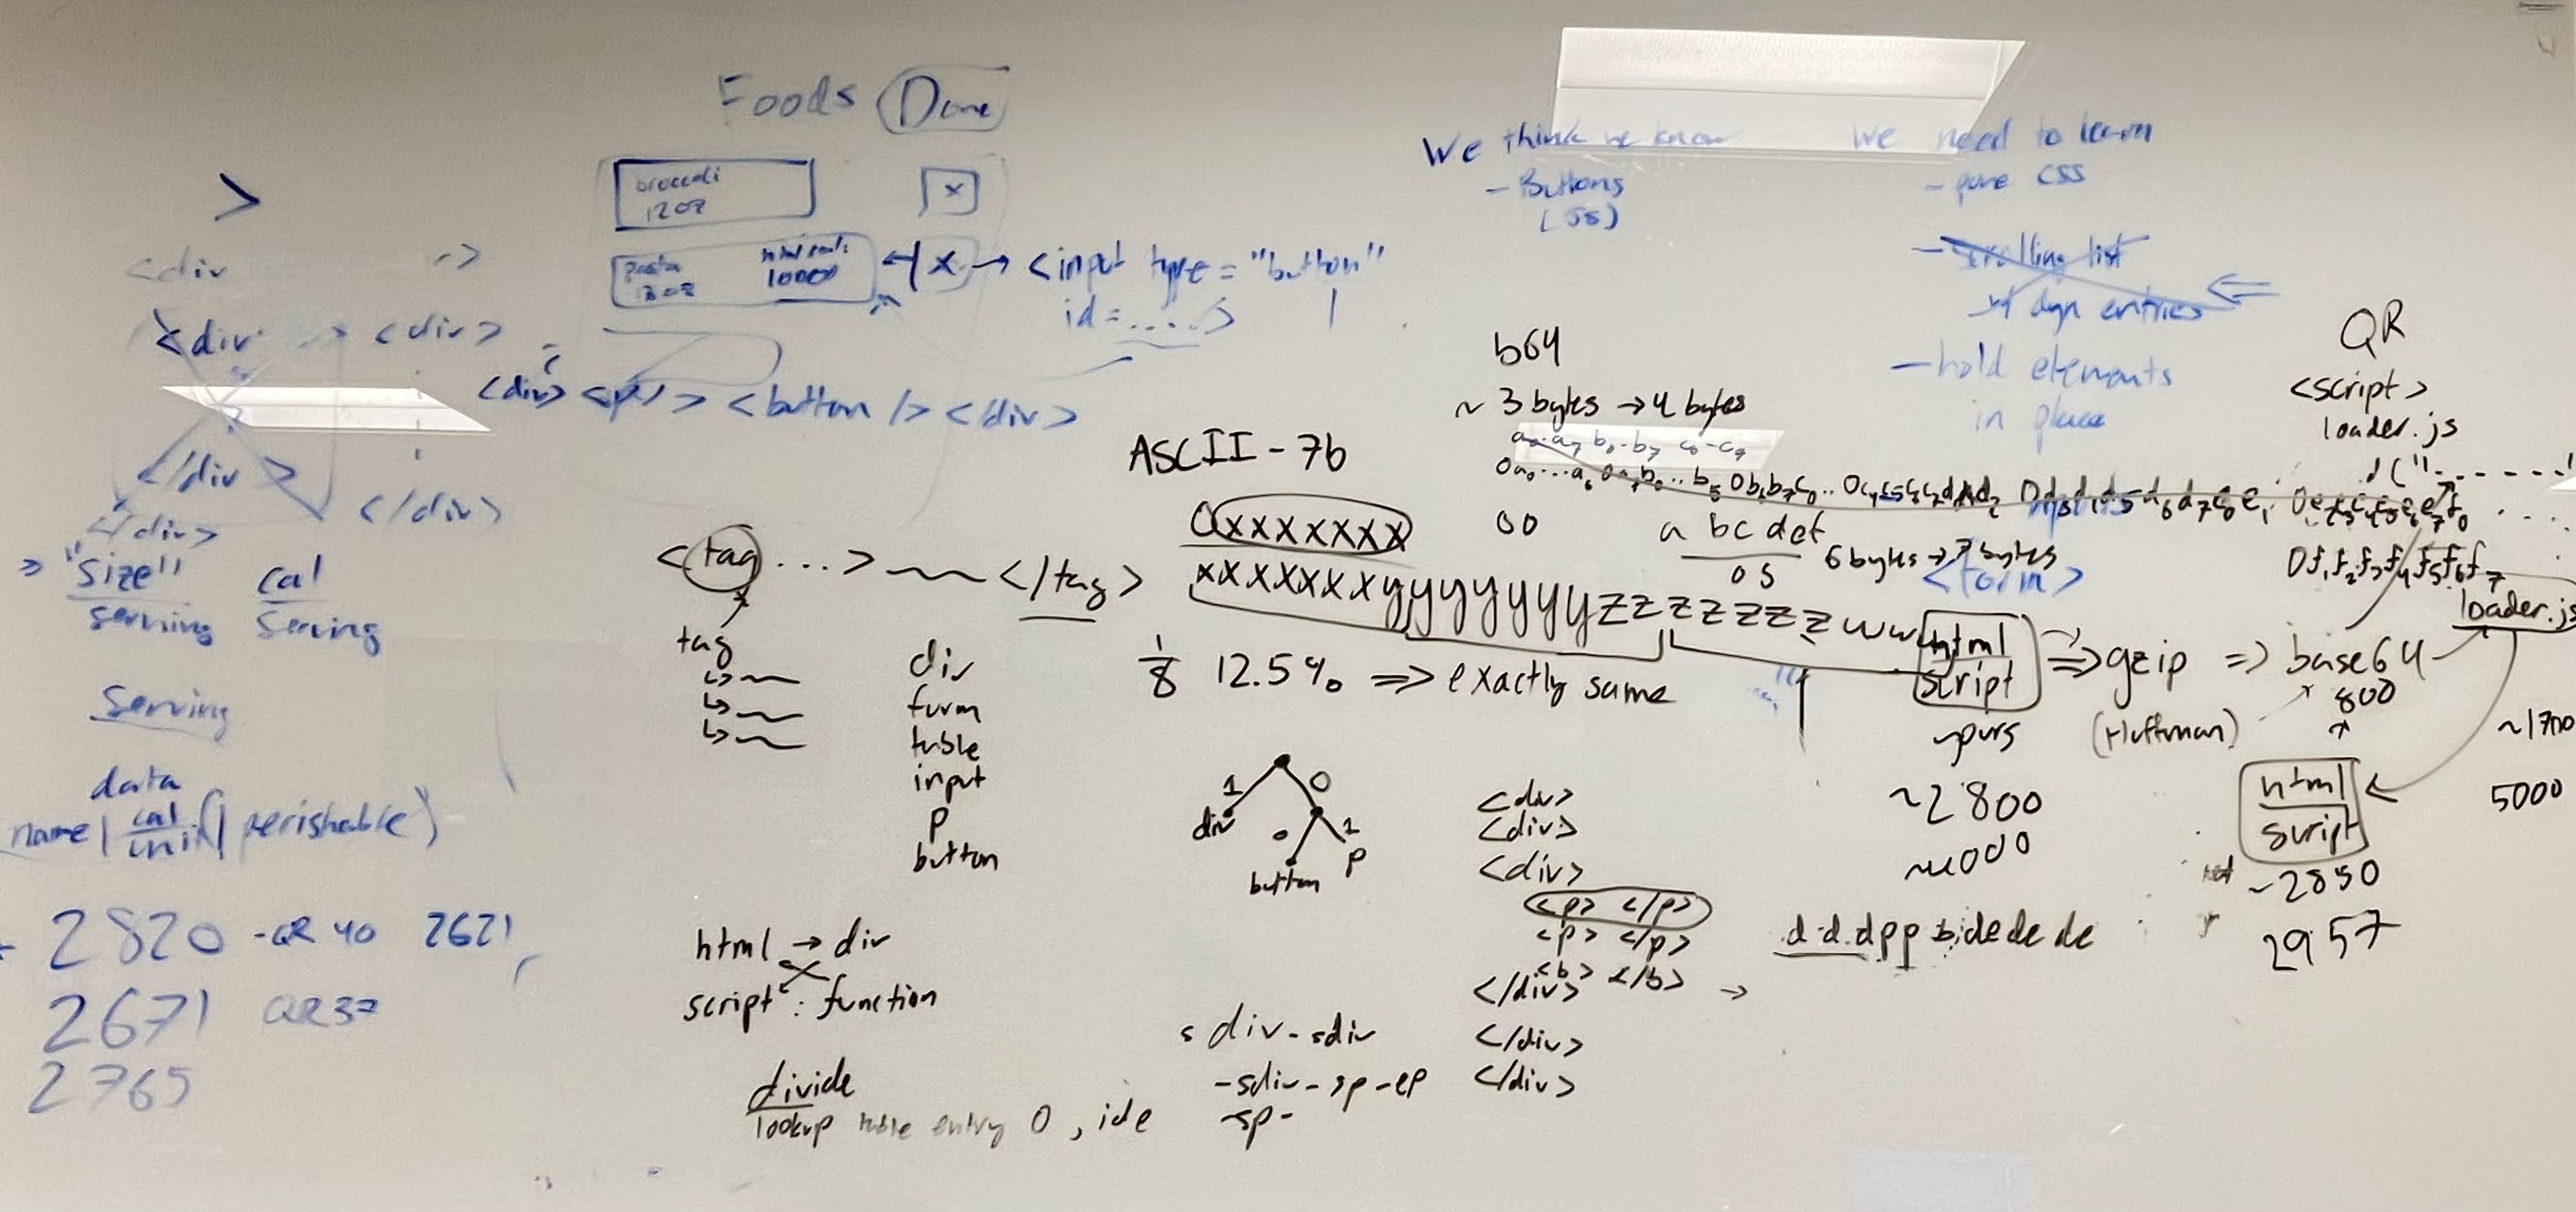 Foods Done
broccoli
12oz
x
pasta
total cal:
1000
x → <input type = "button"
id = ..... >
>
<div >
<div > <div>
</div> </div>
</div>
<div> <p/> <button /> </div>
"size"
serving
cal
serving
serving
data
name | cal
unit | perishable)
2820 - QR 40 2621
2671 QR37
2765
We think we know
- Buttons
(JS)
We need to learn
- pure CSS
- scrolling list
w/ dyn entries
- hold elements
in place
<form>
QR
<script>
loader.js
b64
~ 3 bytes → 4 bytes
ASCII - 7b
0xxxxxxx
xxxxxxxyyyyyyyzzzzzzzww
1/8 12.5% => exactly same
a bc def
05
6 bytes → 7 bytes
0f₁f₂f₃f₄f₅f₆f₇
<tag ...> ~~ </tag>
tag
div
form
table
input
p
button
1 0
div
0 1
button p
html
script
=> gzip => base64
(Huffman)
800
loader.js
~2800
~4000
~1700
5000
html
script
~2850
2957
<div>
<div>
<div>
<p> </p>
<p> </p>
<b> </b>
</div> →
</div>
</div>
d d d p p b d e d e d e
html → div
script : function
divide
lookup table entry 0, ide
s div - sdiv
- sdiv - sp - ep
- sp -